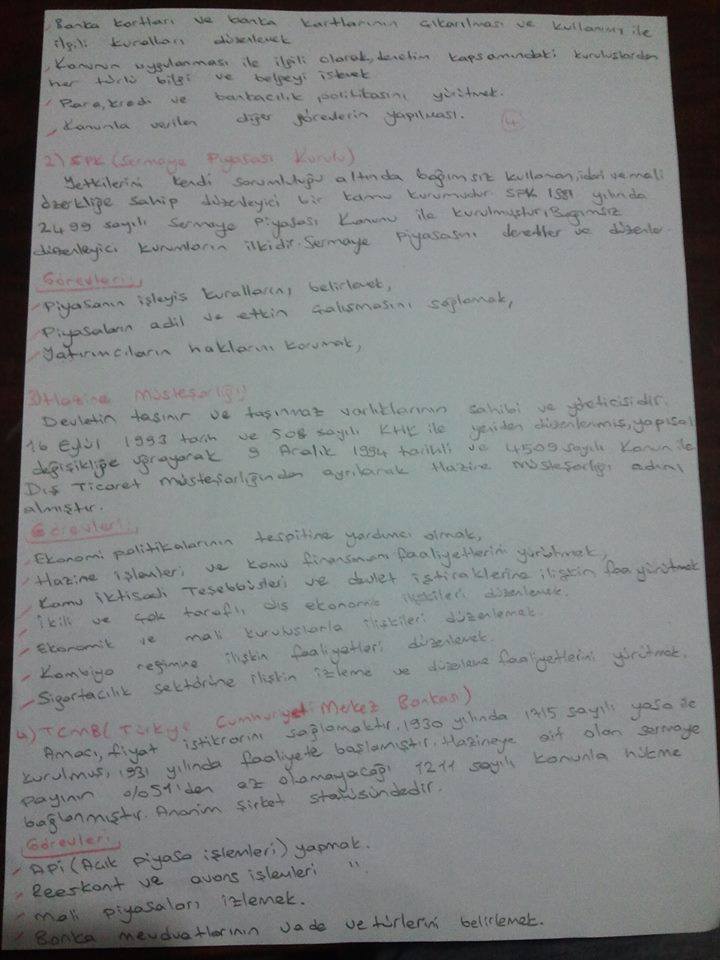 Banka kartları ve banka kartlarının çıkarılması ve kullanımı ile
ilgili kuralları düzenlemek
Kanunun uygulanması ile ilgili olarak, denetim kapsamındaki kuruluşlardan
her türlü bilgi ve belgeyi istemek
Para, kredi ve bankacılık politikasını yürütmek.
Kanunla verilen diğer görevlerin yapılması. 4
2) SPK (Sermaye Piyasası Kurulu)
Yetkilerini kendi sorumluluğu altında bağımsız kullanan, idari ve mali
özerkliğe sahip düzenleyici bir kamu kurumudur. SPK 1981 yılında
2499 sayılı Sermaye Piyasası Kanunu ile kurulmuştur. Bağımsız
düzenleyici kurumların ilkidir. Sermaye piyasasını denetler ve düzenler.
Görevleri;
Piyasanın işleyiş kurallarını belirlemek,
Piyasaların adil ve etkin çalışmasını sağlamak,
Yatırımcıların haklarını korumak,
3) Hazine Müsteşarlığı
Devletin taşınır ve taşınmaz varlıklarının sahibi ve yöneticisidir.
16 Eylül 1993 tarih ve 508 sayılı KHK ile yeniden düzenlenmiş, yapısal
değişikliğe uğrayarak 9 Aralık 1994 tarihli ve 4509 sayılı Kanun ile
Dış Ticaret Müsteşarlığından ayrılarak Hazine Müsteşarlığı adını
almıştır.
Görevleri;
Ekonomi politikalarının tespitine yardımcı olmak,
Hazine işlemleri ve kamu finansmanı faaliyetlerini yürütmek,
Kamu iktisadi Teşebbüsleri ve devlet iştiraklerine ilişkin faa. yürütmek
İkili ve çok taraflı dış ekonomik ilişkileri düzenlemek.
Ekonomik ve mali kuruluşlarla ilişkileri düzenlemek.
Kambiyo rejimine ilişkin faaliyetleri düzenlemek.
Sigortacılık sektörüne ilişkin izleme ve düzenleme faaliyetlerini yürütmek.
4) TCMB (Türkiye Cumhuriyeti Merkez Bankası)
Amacı, fiyat istikrarını sağlamaktır. 1930 yılında 1715 sayılı yasa ile
kurulmuş, 1931 yılında faaliyete başlamıştır. Hazineye ait olan sermaye
payının %51'den az olamayacağı 1211 sayılı kanunla hükme
bağlanmıştır. Anonim şirket statüsündedir.
Görevleri;
APİ (Açık piyasa işlemleri) yapmak.
Reeskont ve avans işlemleri "
Mali piyasaları izlemek.
Banka mevduatlarının vade ve türlerini belirlemek.